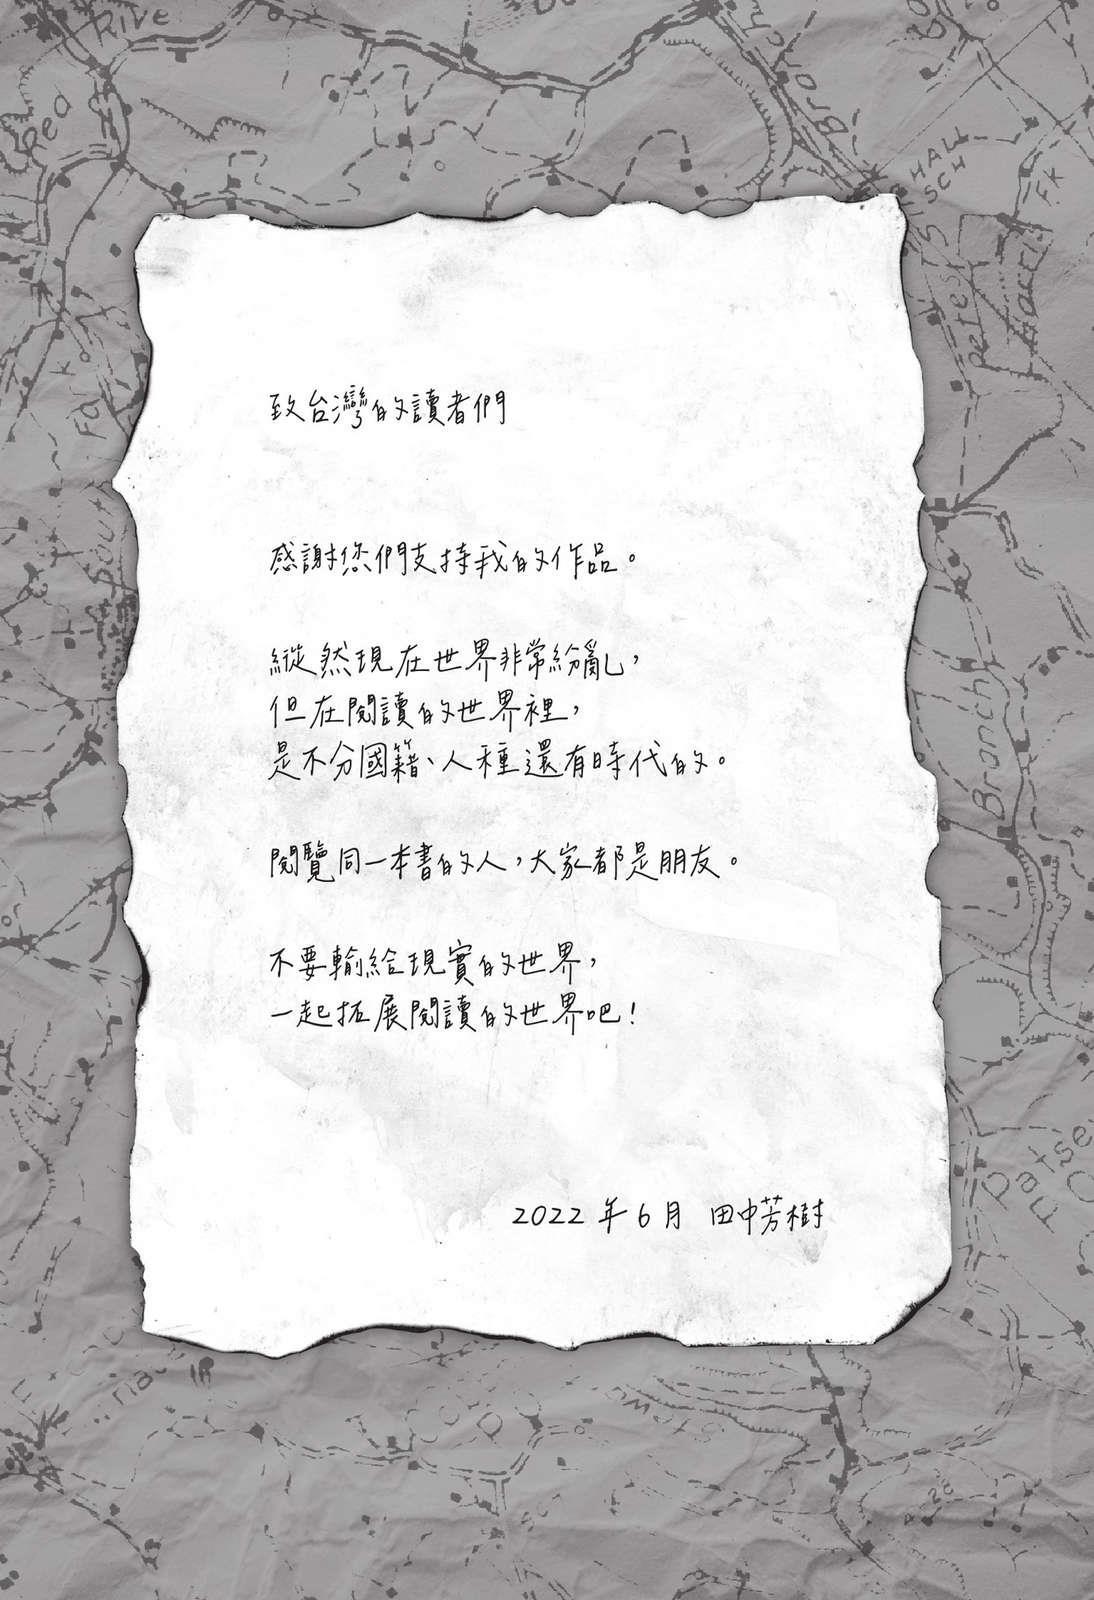 致台灣的讀者們
感謝您們支持我的作品。
縱然現在世界非常紛亂，
但在閱讀的世界裡，
是不分國籍、人種還有時代的。
閱覽同一本書的人，大家都是朋友。
不要輸給現實的世界，
一起拓展閱讀的世界吧！
2022年6月 田中芳樹
Rive
Red
Fork
South
Branch
HALL
SCH
FK
Harris
Branch